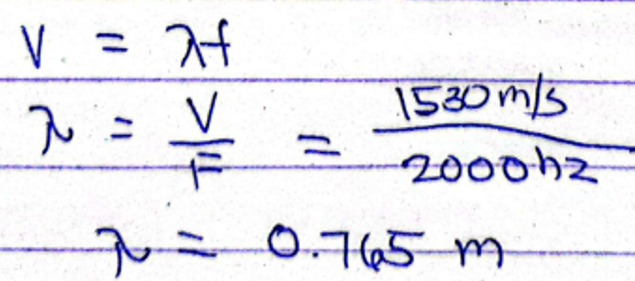 V = λf
λ = V/F = 1530m/s/2000hz
λ = 0.765 m